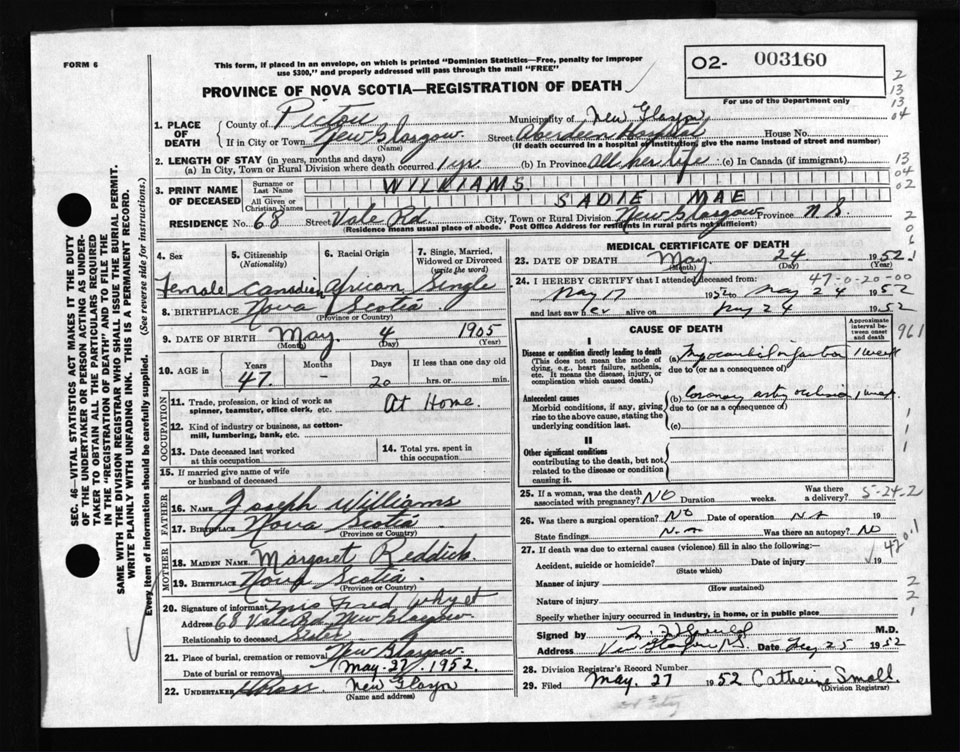 FORM 6
This form, if placed in an envelope, on which is printed "Dominion Statistics—Free, penalty for improper
use $300," and properly addressed will pass through the mail "FREE"
PROVINCE OF NOVA SCOTIA—REGISTRATION OF DEATH
02- 003160
For use of the Department only
2
13
13
04
1. PLACE OF DEATH
County of Pictou Municipality of New Glasgow
If in City or Town New Glasgow Street Aberdeen Hospital House No.
(Name) (If death occurred in a hospital or institution, give the name instead of street and number)
2. LENGTH OF STAY (in years, months and days)
(a) In City, Town or Rural Division where death occurred 1 yr. (b) In Province All her life (c) In Canada (if immigrant)
13
04
02
3. PRINT NAME OF DECEASED
Surname or Last Name WILLIAMS.
All Given or Christian Names SADIE MAE
RESIDENCE No. 68 Street Vale Rd. City, Town or Rural Division New Glasgow Province N S.
(Residence means usual place of abode. Post Office Address for residents in rural parts not sufficient)
2
0
6
SEC. 46—VITAL STATISTICS ACT MAKES IT THE DUTY
OF THE UNDERTAKER OR PERSON ACTING AS UNDER-
TAKER TO OBTAIN ALL THE PARTICULARS REQUIRED
IN THE "REGISTRATION OF DEATH" AND TO FILE THE
SAME WITH THE DIVISION REGISTRAR WHO SHALL ISSUE THE BURIAL PERMIT.
WRITE PLAINLY WITH UNFADING INK. THIS IS A PERMANENT RECORD.
Every item of information should be carefully supplied. (See reverse side for instructions.)
4. Sex 5. Citizenship (Nationality) 6. Racial Origin 7. Single, Married, Widowed or Divorced (write the word)
Female Canadian African Single
8. BIRTHPLACE Nova Scotia
(Province or Country)
9. DATE OF BIRTH May 4 1905
(Month) (Day) (Year)
10. AGE in Years Months Days If less than one day old
47. - 20 hrs. or min.
OCCUPATION
11. Trade, profession, or kind of work as spinner, teamster, office clerk, etc. At Home.
12. Kind of industry or business, as cotton-mill, lumbering, bank, etc.
13. Date deceased last worked at this occupation
14. Total yrs. spent in this occupation
15. If married give name of wife or husband of deceased
FATHER
16. NAME Joseph Williams
17. BIRTHPLACE Nova Scotia
(Province or Country)
MOTHER
18. MAIDEN NAME Margaret Reddick.
19. BIRTHPLACE Nova Scotia.
(Province or Country)
20. Signature of informant Mrs Fred Whyet
Address 68 Vale Rd. New Glasgow
Relationship to deceased Sister
21. Place of burial, cremation or removal New Glasgow.
Date of burial or removal May. 27, 1952.
22. UNDERTAKER New Glasgow
(Name and address)
MEDICAL CERTIFICATE OF DEATH
23. DATE OF DEATH May 24 1952.
(Month) (Day) (Year)
24. I HEREBY CERTIFY that I attended deceased from: 47-0-20-00
May 17 1952 to May 24 1952
and last saw her alive on May 24 1952
CAUSE OF DEATH
Approximate interval between onset and death
961
I
Disease or condition directly leading to death
(This does not mean the mode of dying, e.g., heart failure, asthenia, etc. It means the disease, injury, or complication which caused death.)
(a) Myocardial infarction 1 week
due to (or as a consequence of)
Antecedent causes
Morbid conditions, if any, giving rise to the above cause, stating the underlying condition last.
(b) Coronary artery occlusion 1 week
due to (or as a consequence of)
(c)
II
Other significant conditions
contributing to the death, but not related to the disease or condition causing it.
25. If a woman, was the death associated with pregnancy? NO Duration weeks. Was there a delivery? 5-24-2
26. Was there a surgical operation? NO Date of operation NA
State findings N.A Was there an autopsy? NO
27. If death was due to external causes (violence) fill in also the following:— 420.1
Accident, suicide or homicide? Date of injury 19
(State which)
Manner of injury
(How sustained)
Nature of injury
Specify whether injury occurred in industry, in home, or in public place
Signed by M.D.
Address New Glasgow N.S. Date May 25 1952
28. Division Registrar's Record Number
29. Filed May. 27 1952 Catherine Small.
(Division Registrar)